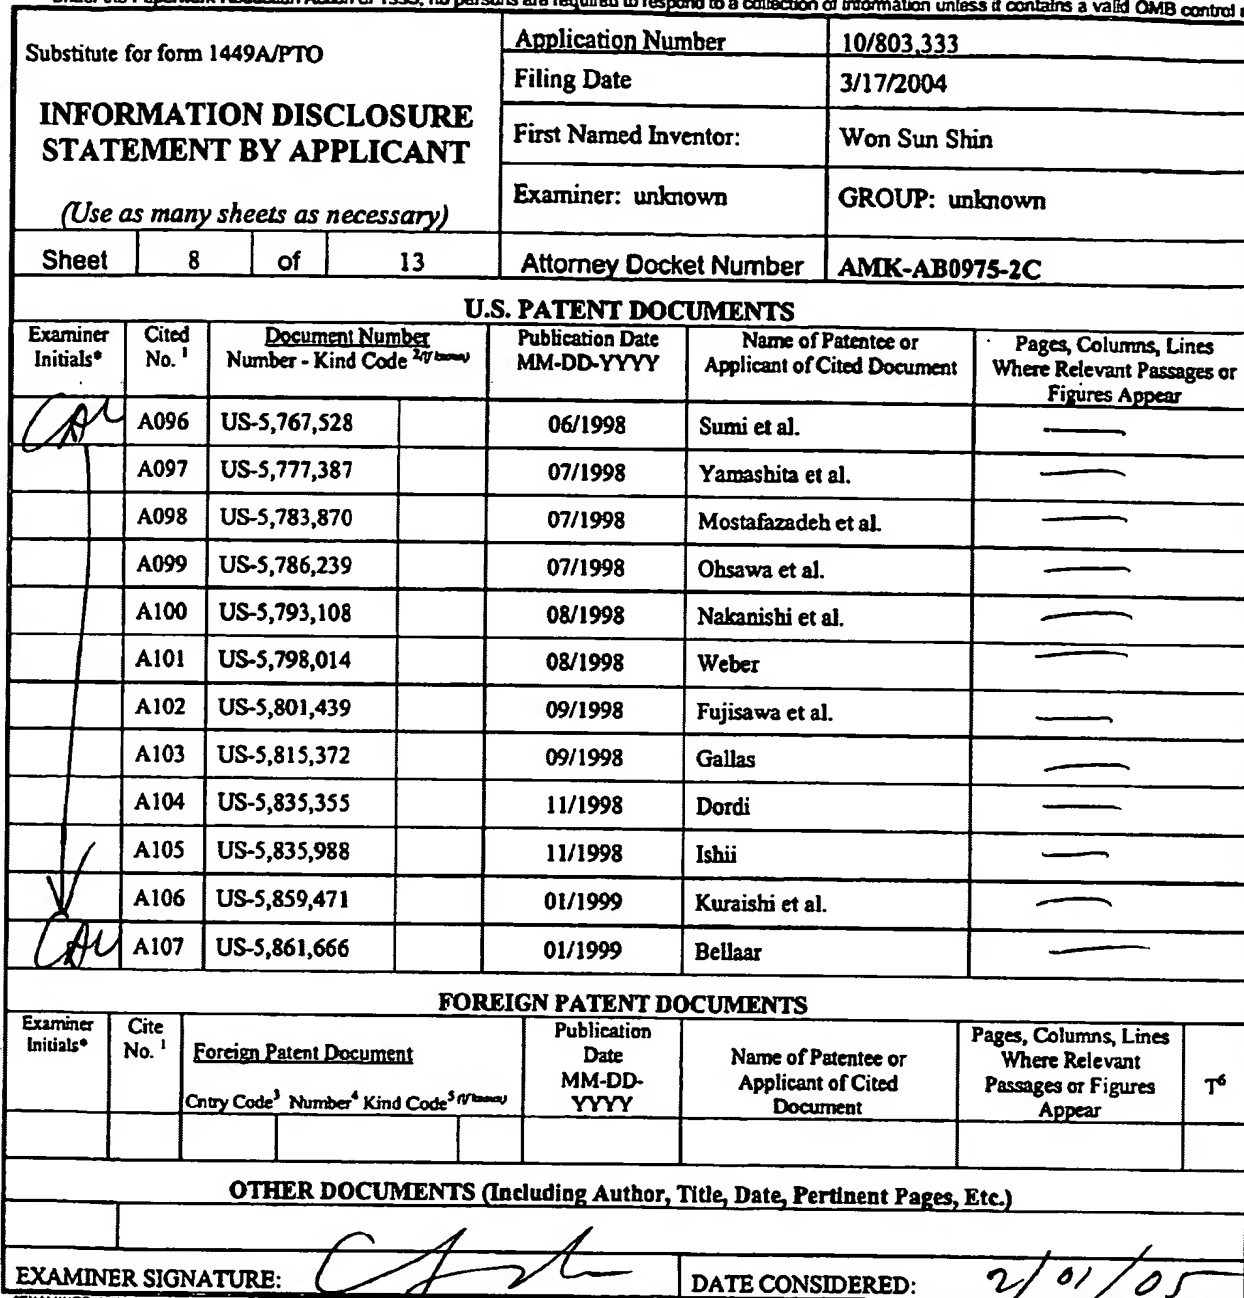 Under the Paperwork Reduction Act of 1995, no persons are required to respond to a collection of information unless it contains a valid OMB control
Substitute for form 1449A/PTO
INFORMATION DISCLOSURE
STATEMENT BY APPLICANT
(Use as many sheets as necessary)
Sheet 8 of 13
Application Number 10/803,333
Filing Date 3/17/2004
First Named Inventor: Won Sun Shin
Examiner: unknown GROUP: unknown
Attorney Docket Number AMK-AB0975-2C
U.S. PATENT DOCUMENTS
Examiner Initials* Cited No. 1 Document Number Number - Kind Code 2(if known) Publication Date MM-DD-YYYY Name of Patentee or Applicant of Cited Document Pages, Columns, Lines Where Relevant Passages or Figures Appear
A096 US-5,767,528 06/1998 Sumi et al.
A097 US-5,777,387 07/1998 Yamashita et al.
A098 US-5,783,870 07/1998 Mostafazadeh et al.
A099 US-5,786,239 07/1998 Ohsawa et al.
A100 US-5,793,108 08/1998 Nakanishi et al.
A101 US-5,798,014 08/1998 Weber
A102 US-5,801,439 09/1998 Fujisawa et al.
A103 US-5,815,372 09/1998 Gallas
A104 US-5,835,355 11/1998 Dordi
A105 US-5,835,988 11/1998 Ishii
A106 US-5,859,471 01/1999 Kuraishi et al.
A107 US-5,861,666 01/1999 Bellaar
FOREIGN PATENT DOCUMENTS
Examiner Initials* Cite No. 1 Foreign Patent Document Cntry Code3 Number4 Kind Code5 (if known) Publication Date MM-DD-YYYY Name of Patentee or Applicant of Cited Document Pages, Columns, Lines Where Relevant Passages or Figures Appear T6
OTHER DOCUMENTS (Including Author, Title, Date, Pertinent Pages, Etc.)
EXAMINER SIGNATURE: DATE CONSIDERED: 2/01/05